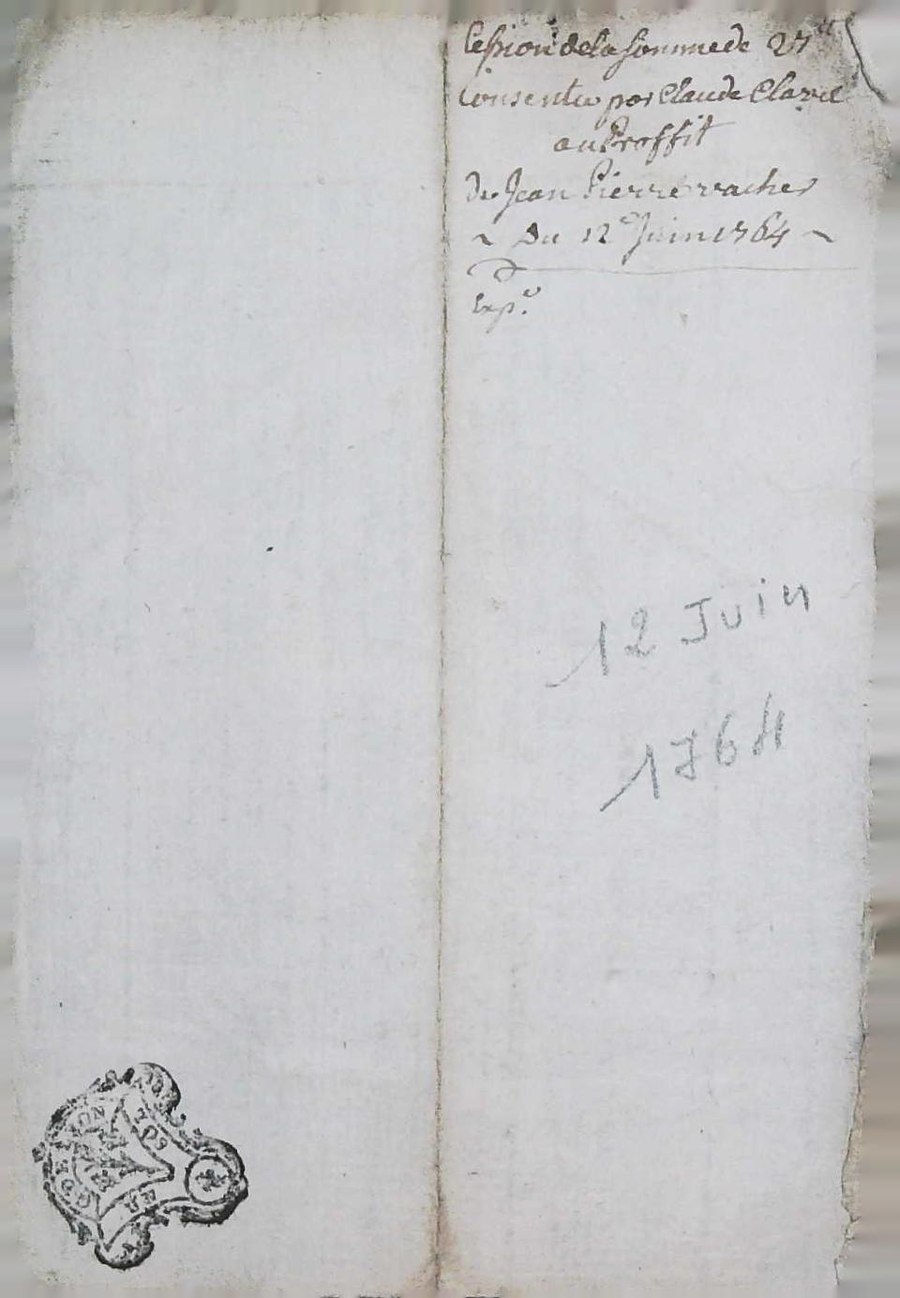 Cession de la somme de 27ᵗᵗ
Consentie par Claude Clavel
au Proffit
de Jean Pierre vacher
~ Du 12ᵉ Juin 1764 ~
Exp.ᵉ
12 Juin
1764
SOL
UN